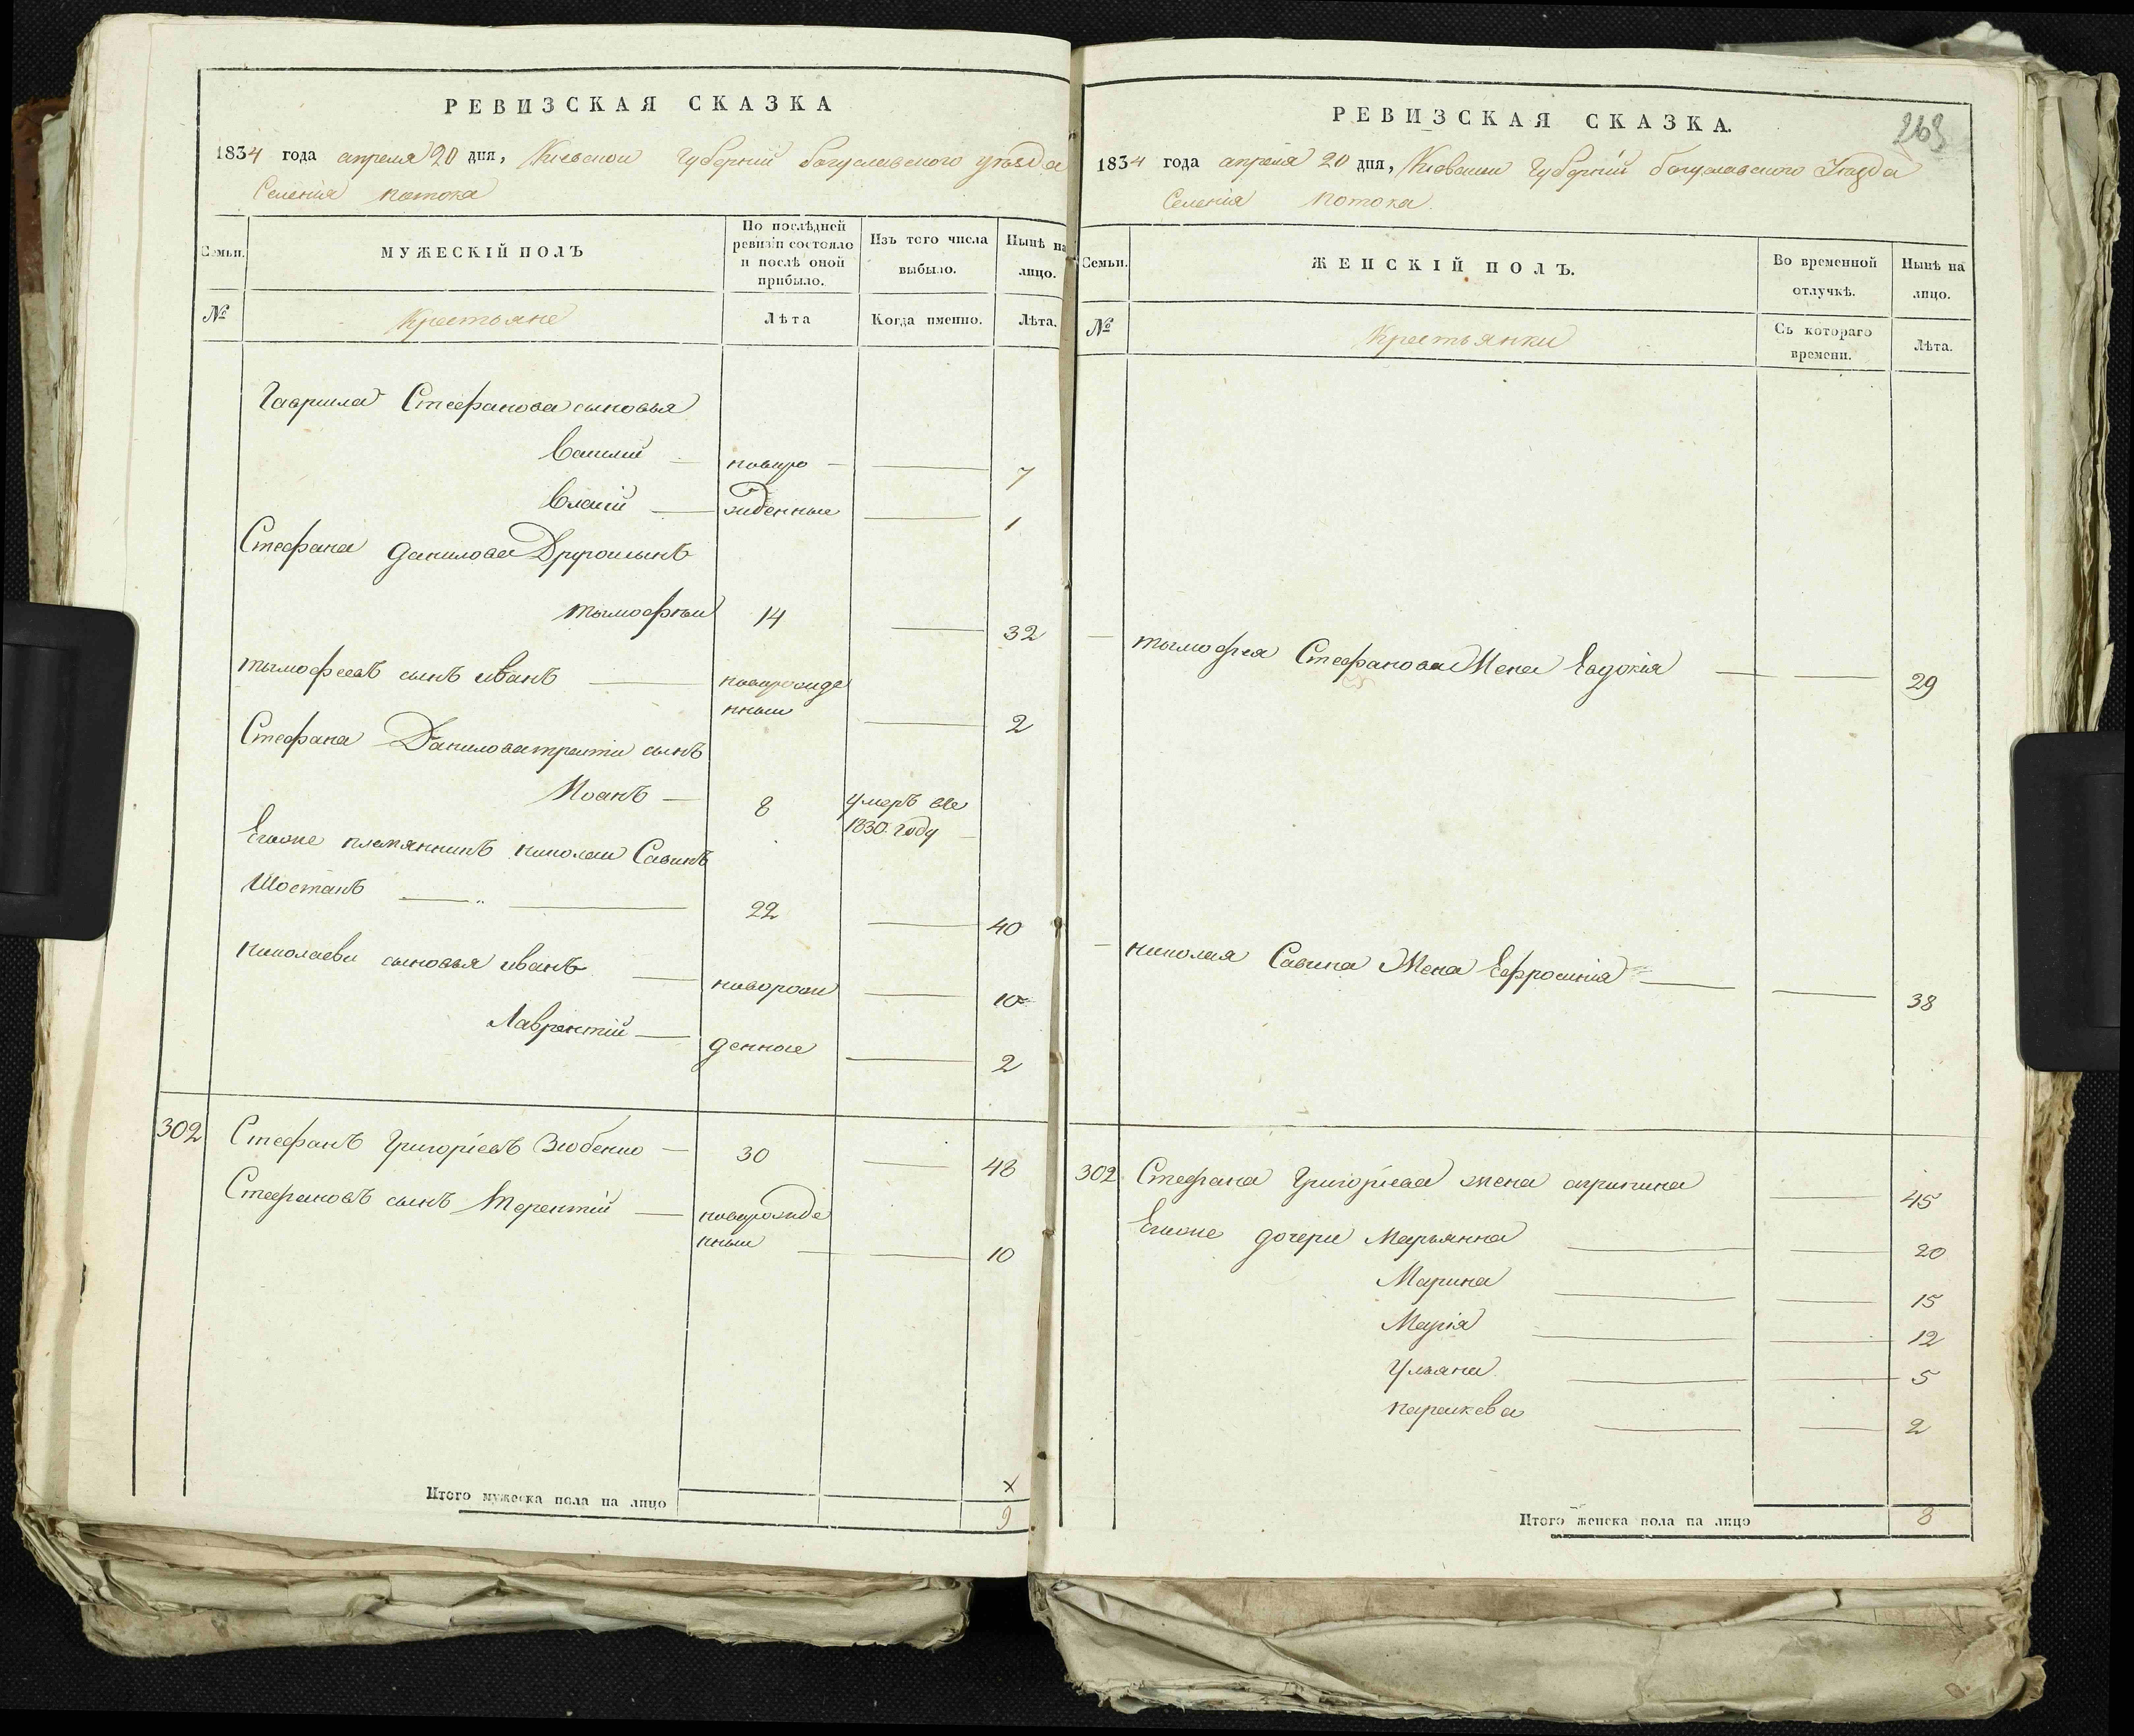 РЕВИЗСКАЯ СКАЗКА
1834 года апреля 20 дня, Киевской Губернiи богуславского уѣзда
Селенiя потока
Семьи.
МУЖЕСКIЙ ПОЛЪ
По послѣдней ревизiи состояло и послѣ оной прибыло.
Изъ того числа выбыло.
Нынѣ на лицо.
№
Крестьяне
Лѣта
Когда именно.
Лѣта.
Гаврила Стефанова сыновья
Василий — новоро — — 7
Власiй — жденные — 1
Стефана данилова Другой сынъ
тымофѣй 14 — 32
тымофеевъ сынъ иванъ — новорожде
нный — 2
Стефана Данилова трети сынъ
Иоанъ — 8 умеръ вѣ
1830 году
Егоже племянникъ николай Савинъ
Шостакъ — „ — 22 — 40
николаеви сыновья иванъ — новорож — 10
Лаврентiй — денные — 2
302 Стефанъ Григорiевъ Зюбенко — 30 — 48
Стефановъ сынъ Терентiй — новорожде
нный — — 10
х
Итого мужеска пола на лицо 9
РЕВИЗСКАЯ СКАЗКА.
269
1834 года апреля 20 дня, Киевской Губернiй богуславского Уезда
Селенiя потока.
Семьи.
ЖЕНСКIЙ ПОЛЪ.
Во временной отлучкѣ.
Нынѣ на лицо.
№
Крестьянки
Съ котораго времени.
Лѣта.
— тымофея Стефанова Жена Евдокiя — — 29
— николая Савина Жена Ефросинiя — — 38
302 Стефана Григорiева жена агрипина — 45
Егоже дочери Марьянна — — 20
Марина — — 15
Марiя — — 12
Ульяна — — 5
параскева — — 2
Итого женска пола на лицо 8